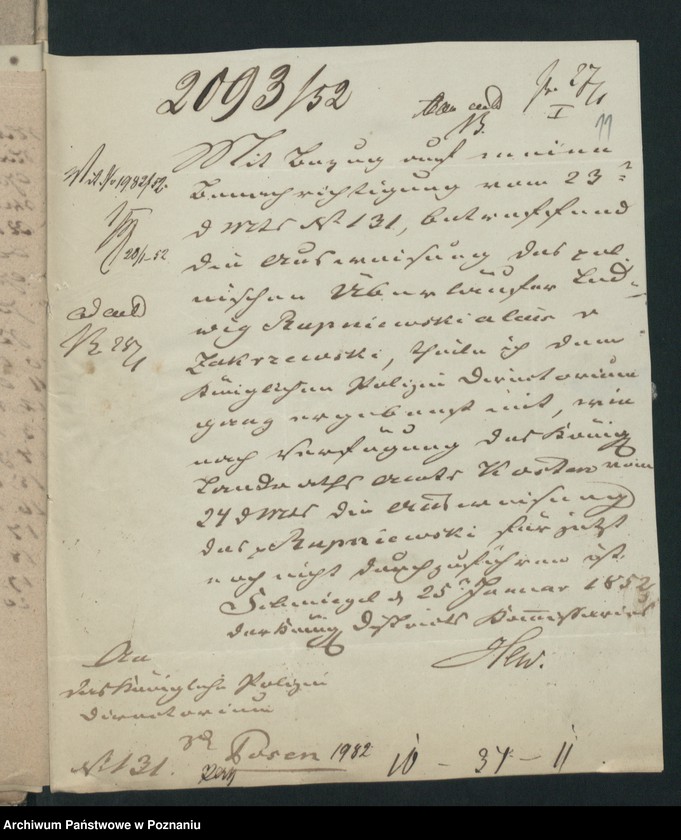 2093/52
pr. 27/1
I
11
Vid. No 1982/52.
28/1 52
Mit Bezug auf meine
Benachrichtigung vom 23t
d Mts No 131, betreffend
die Ausweisung des pol-
nischen Überläufers Lud-
wig Rupniewski alias v
Zakrzewski, theile ich dem
Königlichen Polizei Directorium
ganz ergebenst mit, wie
nach Verfügung des Königl
Landraths Amts Kosten vom
24 d Mts die Ausweisung
des p Rupniewski für jetzt
noch nicht durchzuführen ist.
Schmiegel d 25t Januar 1852
Der Königl Districts Kommissarius
An
das Königliche Polizei
Directorium
Posen
No 131.
1982
10 - 31 - 11
Archiwum Państwowe w Poznaniu